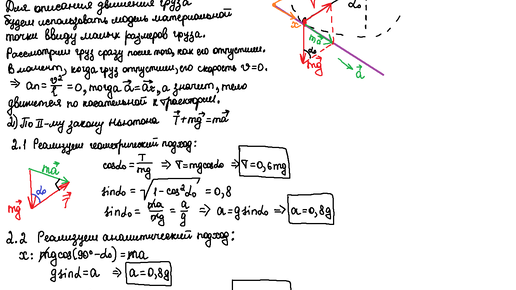 Для описания движения груза
будем использовать модель материальной
точки ввиду малых размеров груза.
Рассмотрим груз сразу после того, как его отпустили.
В момент, когда груз отпустили, его скорость v=0.
⇒ aₙ = v²/r = 0, тогда a⃗=a⃗τ, а значит, тело
движется по касательной к траектории.
2) По II-му закону Ньютона T⃗+mg⃗=ma⃗
2.1 Реализуем геометрический подход:
cosα₀ = T/mg ⇒ T=mgcosα₀ ⇒ T=0,6mg
sinα₀ = √(1-cos²α₀) = 0,8
sinα₀ = ma/mg = a/g ⇒ a=gsinα₀ ⇒ a=0,8g
2.2 Реализуем аналитический подход:
x: mgcos(90°-α₀)=ma
gsinα=a ⇒ a=0,8g
x
α₀
ma⃗
α₀
mg⃗
a⃗
ma⃗
α₀
T⃗
mg⃗